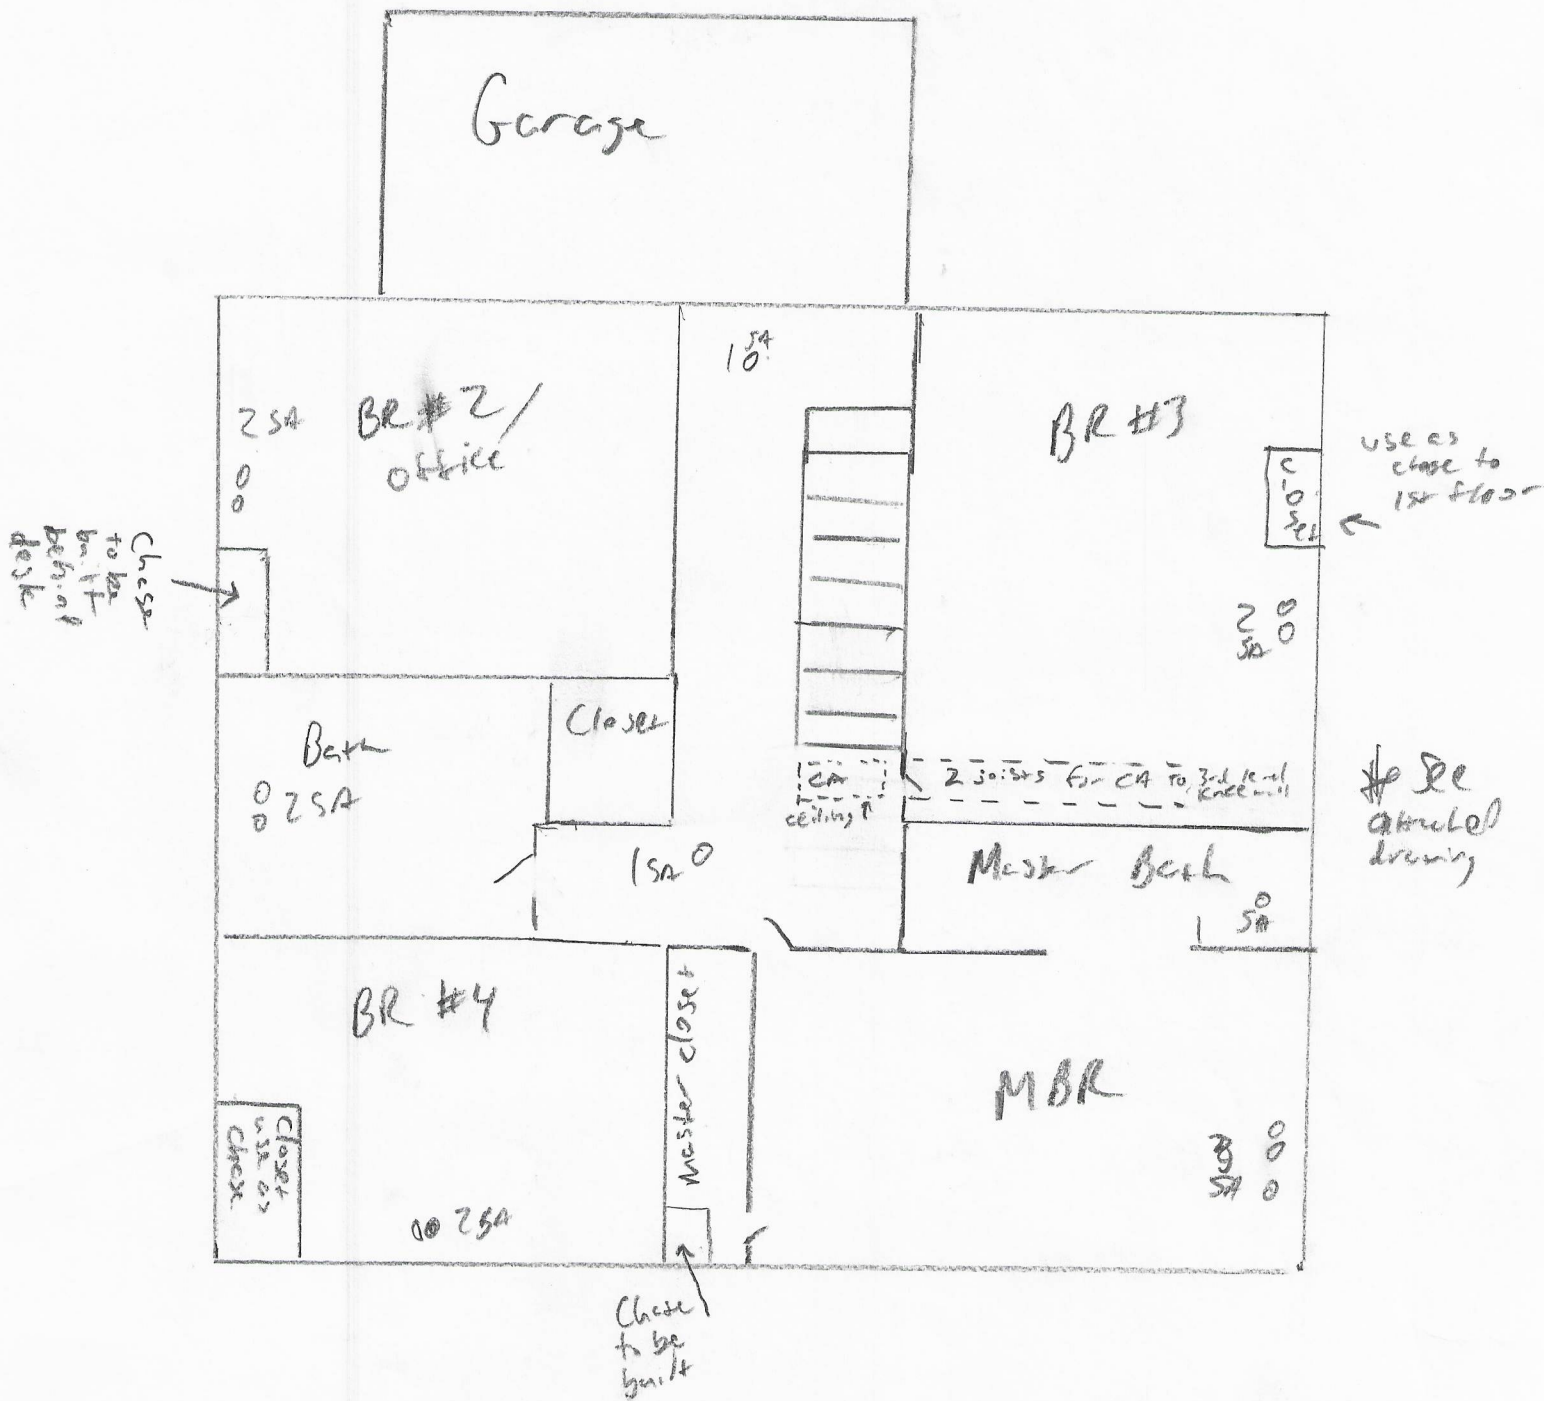 Garage
1 SA
2 SA
BR #2/
office
BR #3
Closet
use as
chase to
1st floor
Chase
to be
built
behind
desk
2
SA
Bath
2 SA
Closet
CA
ceiling
2 joists for CA to 3rd level
kneewall
# See
attached
drawing
1 SA
Master Bath
1 SA
BR #4
Master closet
MBR
Closet
use as
chase
2 SA
3
SA
Chase
to be
built